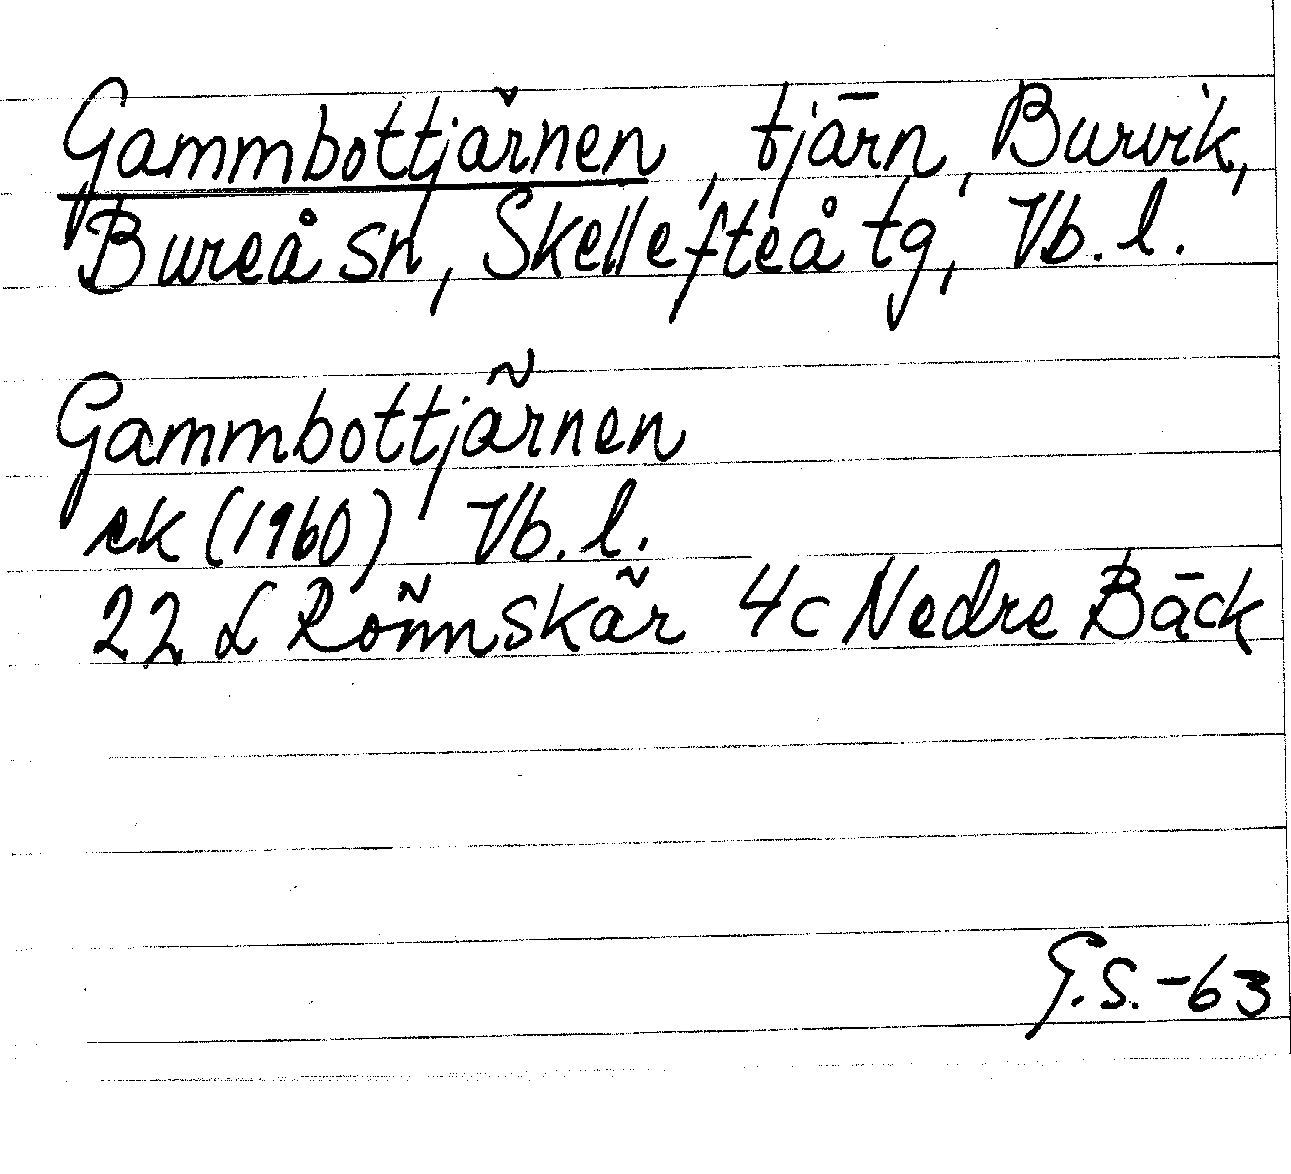 Gammbottjärnen, tjärn, Burvik,
Bureå sn, Skellefteå tg, Vb. l.
Gammbottjärnen
ek (1960) Vb. l.
22 L Rönnskär 4c Nedre Bäck
G.S.-63